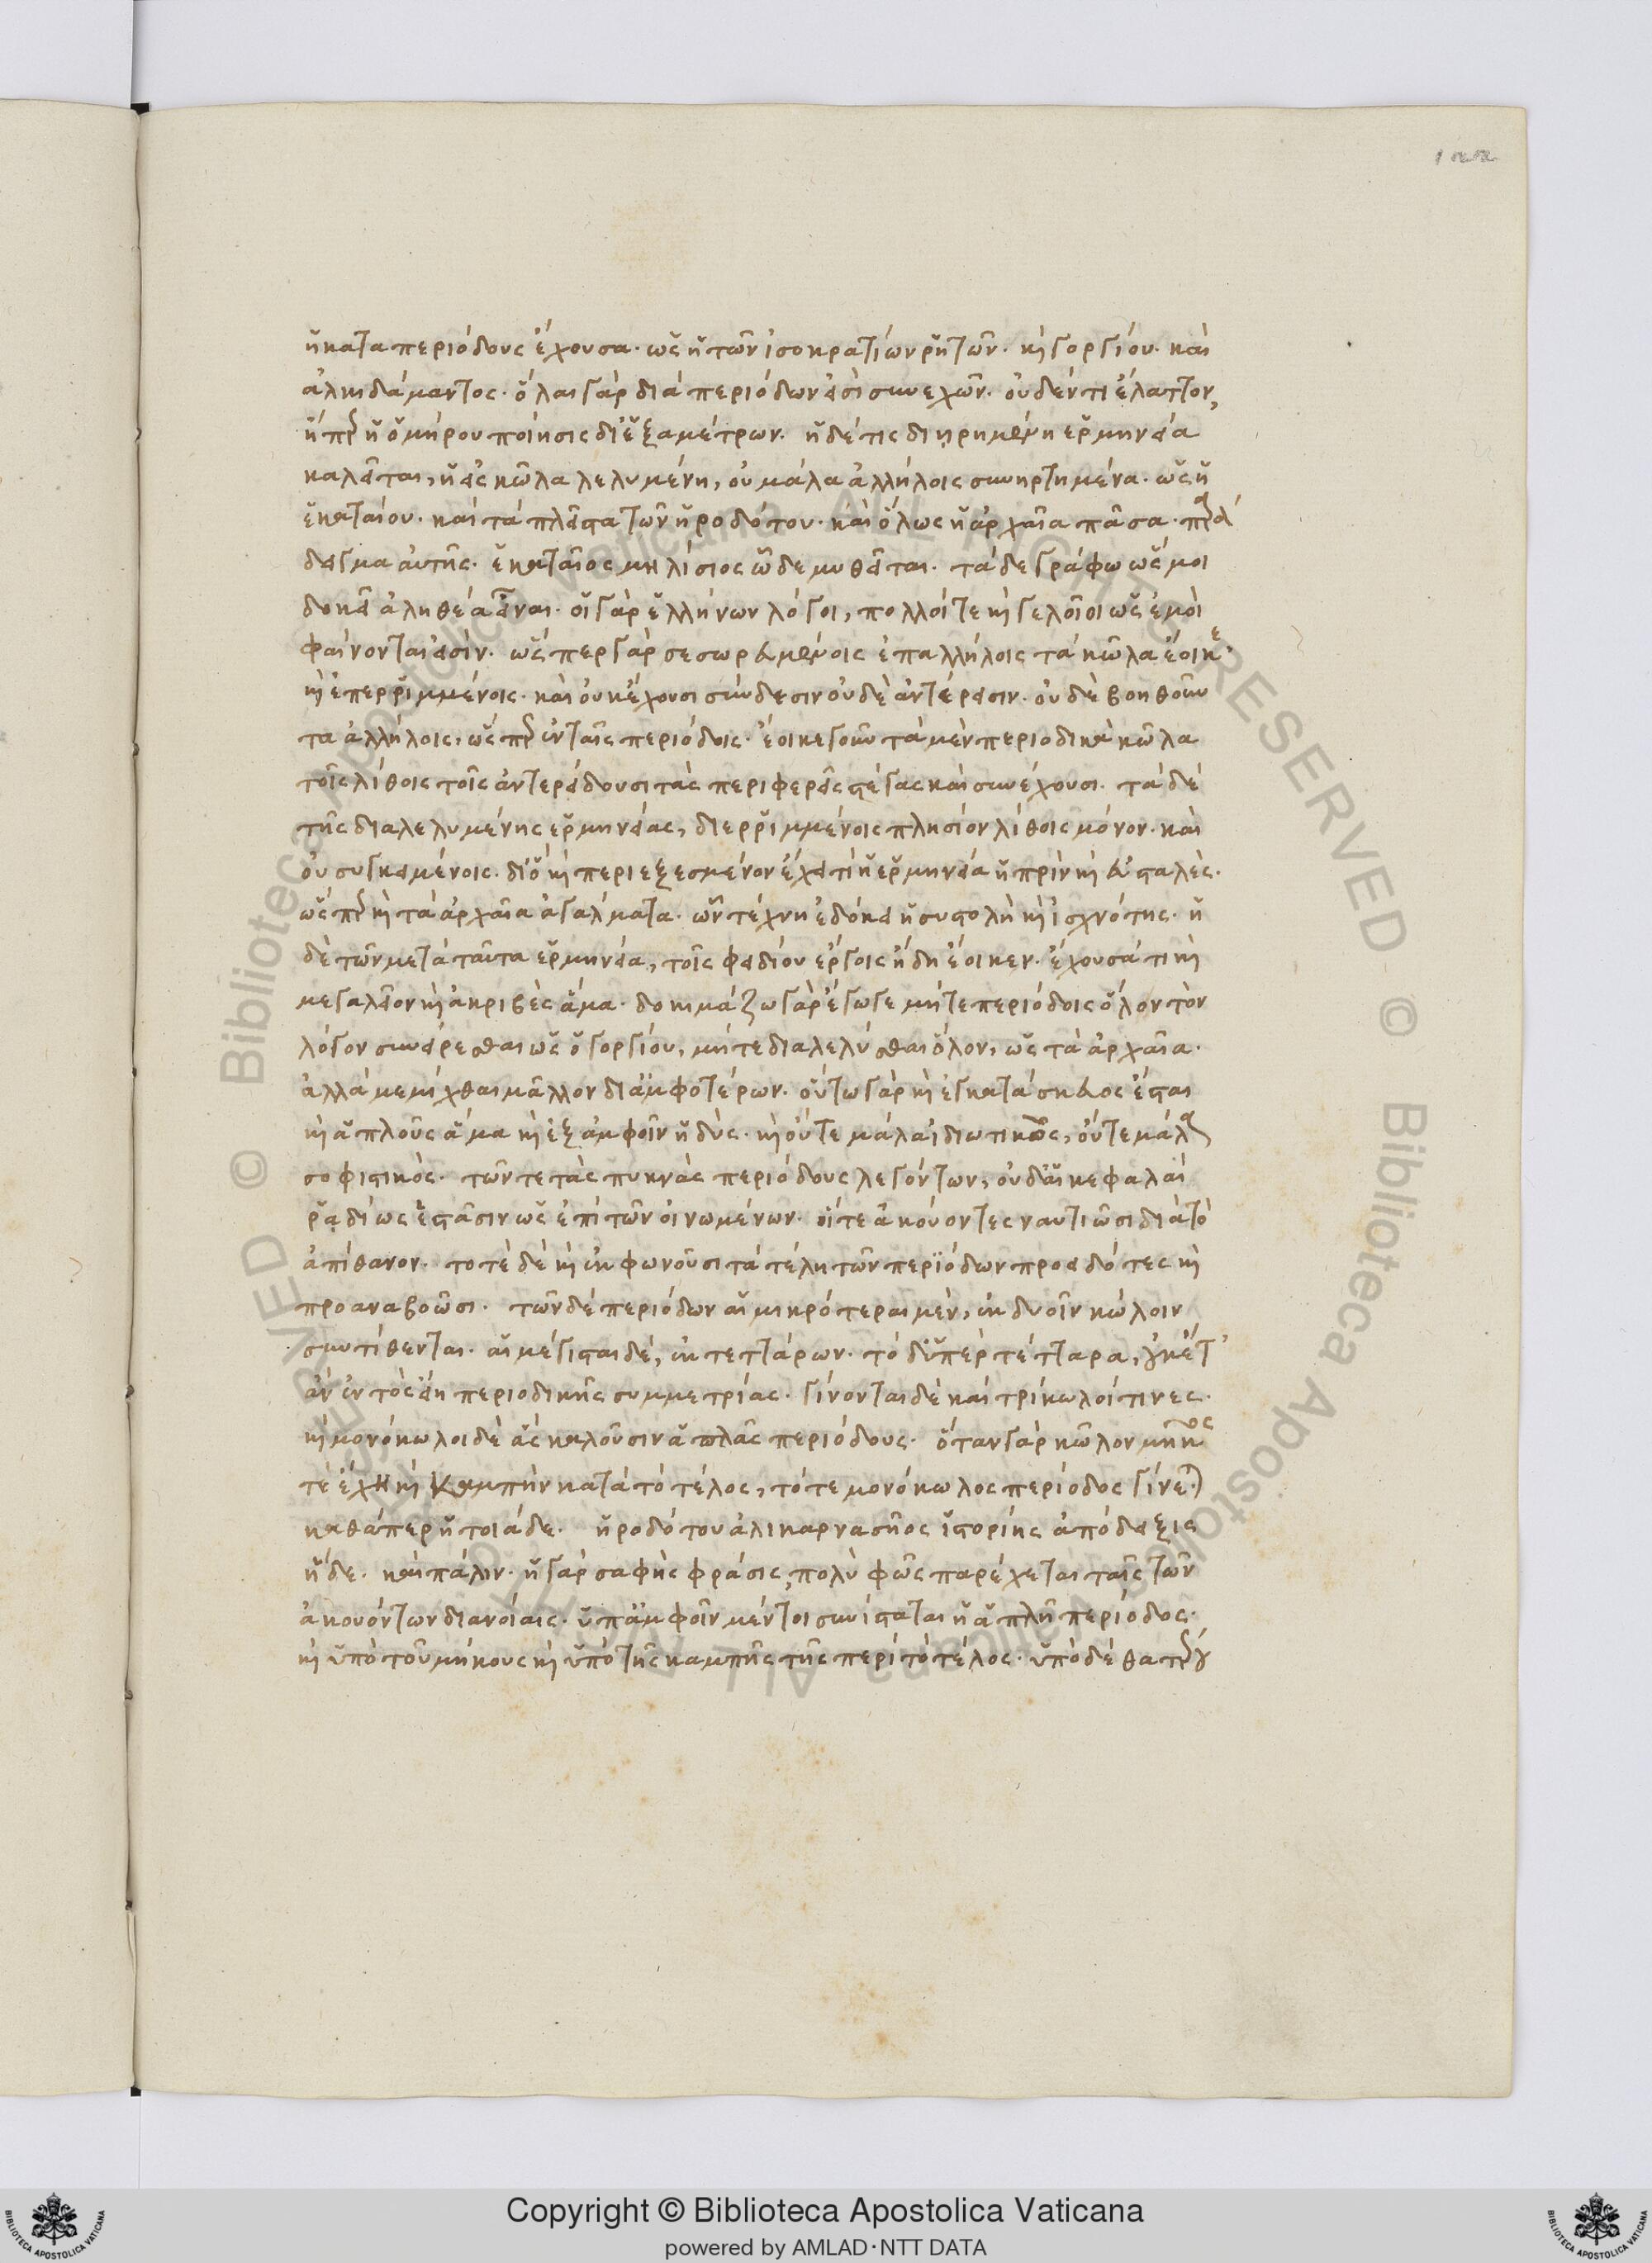 ἡ κατα περιόδους ἔχουσα· ὡς ἡ τῶν ἰσοκρατίων ῥητῶν· καὶ γοργίου· καὶ
ἀλκιδάμαντος· ὅλαι γὰρ διὰ περιόδων εἰσὶ συνεχῶν· οὐδέν τι ἔλαττον,
ἤπερ ἡ ὁμήρου ποίησις δι' ἑξαμέτρων· ἡ δέ τις διῃρημένη ἑρμηνεία
καλεῖται, ἡ εἰς κῶλα λελυμένη, οὐ μάλα ἀλλήλοις συνηρτημένα· ὡς ἡ
ἑκαταίου· καὶ τὰ πλεῖστα τῶν ἡροδότου· καὶ ὅλως ἡ ἀρχαία πᾶσα· παρά
δειγμα αὐτῆς· ἑκαταῖος μηλίσιος ὧδε μυθεῖται· τάδε γράφω ὥς μοι
δοκεῖ ἀληθέα εἶναι· οἱ γὰρ ἑλλήνων λόγοι, πολλοί τε καὶ γελοῖοι ὡς ἐμοὶ
φαίνονται εἰσίν· ὥσπερ γὰρ σεσωρευμένοις ἐπαλλήλοις τὰ κῶλα ἔοικε·
καὶ ἐπερριμμένοις· καὶ οὐκ ἔχουσι σύνδεσιν οὐδὲ ἀντέρεισιν· οὐδὲ βοηθοῦν
τα ἀλλήλοις, ὥσπερ ἐν ταῖς περιόδοις· ἔοικε γοῦν τὰ μὲν περιοδικὰ κῶλα
τοῖς λίθοις τοῖς ἀντερείδουσι τὰς περιφερεῖς στέγας καὶ συνέχουσι· τὰ δὲ
τῆς διαλελυμένης ἑρμηνείας, διερριμμένοις πλησίον λίθοις μόνον· καὶ
οὐ συγκειμένοις· διὸ καὶ περιεξεσμένον ἔχει τι ἡ ἑρμηνεία ἡ πρὶν καὶ εὐσταλὲς·
ὥσπερ καὶ τὰ ἀρχαῖα ἀγάλματα· ὧν τέχνη ἐδόκει ἡ συστολὴ καὶ ἰσχνότης· ἡ
δὲ τῶν μετὰ ταῦτα ἑρμηνεία, τοῖς φειδίου ἔργοις ἤδη ἔοικεν· ἔχουσά τι καὶ
μεγαλεῖον καὶ ἀκριβὲς ἅμα· δοκιμάζω γὰρ ἔγωγε μήτε περιόδοις ὅλον τὸν
λόγον συνείρεσθαι ὡς ὁ γοργίου, μήτε διαλελύσθαι ὅλον, ὡς τὰ ἀρχαῖα·
ἀλλὰ μεμίχθαι μᾶλλον δι' ἀμφοτέρων· οὕτω γὰρ καὶ ἐγκατάσκευος ἔσται
καὶ ἁπλοῦς ἅμα καὶ ἐξ ἀμφοῖν ἡδύς· καὶ οὔτε μάλα ἰδιωτικῶς, οὔτε μάλα
σοφιστικός· τῶν τε τὰς πυκνὰς περιόδους λεγόντων, οὐδ' αἱ κεφαλαὶ
ῥᾳδίως ἑστᾶσιν ὡς ἐπὶ τῶν οἰνωμένων· οἵ τε ἀκούοντες ναυτιῶσι διὰ τὸ
ἀπίθανον· τοτὲ δὲ καὶ ἐκφωνοῦσι τὰ τέλη τῶν περιόδων προειδότες καὶ
προαναβοῶσι· τῶν δὲ περιόδων αἱ μικρότεραι μὲν, ἐκ δυοῖν κώλοιν
συντίθενται· αἱ μέγισται δέ, ἐκ τεττάρων· τὸ δ' ὑπὲρ τέτταρα, οὐκέτ'
ἂν ἐντὸς εἴη περιοδικῆς συμμετρίας· γίνονται δὲ καὶ τρίκωλοί τινες·
καὶ μονόκωλοι δὲ ἃς καλοῦσιν ἁπλᾶς περιόδους· ὅταν γὰρ κῶλον μῆκος
τε ἔχῃ καὶ καμπὴν κατὰ τὸ τέλος, τότε μονόκωλος περίοδος γίνεται)
καθάπερ ἡ τοιάδε· ἡροδότου ἁλικαρνασῆος ἱστορίης ἀπόδειξις
ἥδε· καὶ πάλιν· ἡ γὰρ σαφὴς φράσις, πολὺ φῶς παρέχεται ταῖς τῶν
ἀκουόντων διανοίαις· ὑπ' ἀμφοῖν μέντοι συνίσταται ἡ ἁπλῆ περίοδος·
καὶ ὑπὸ τοῦ μήκους καὶ ὑπὸ τῆς καμπῆς τῆς περὶ τὸ τέλος· ὑπὸ δὲ θατέρου
Copyright © Biblioteca Apostolica Vaticana
powered by AMLAD·NTT DATA